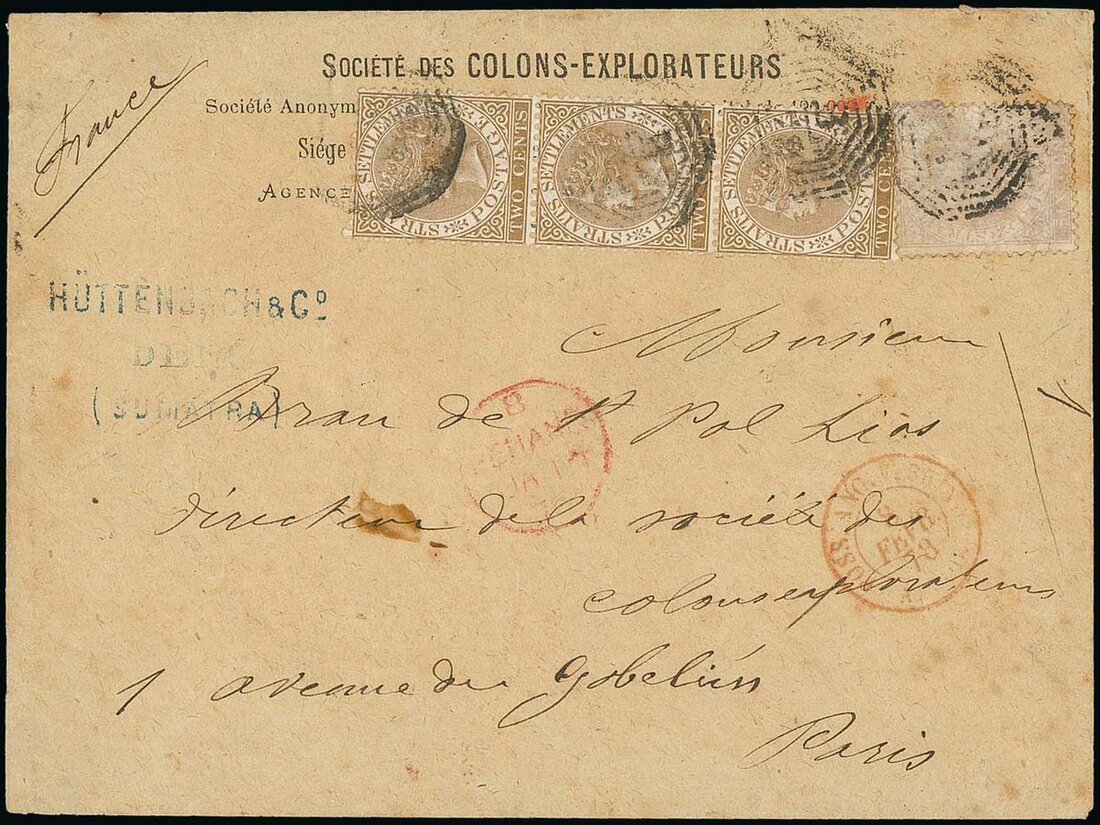 France
SOCIÉTÉ DES COLONS-EXPLORATEURS
Société Anonym
Siége
AGENCE
STRAITS SETTLEMENTS POSTAGE TWO CENTS
STRAITS SETTLEMENTS TWO CENTS
STRAITS SETTLEMENTS POST TWO CE
HÜTTENBACH & Cº
DELI
(SUMATRA)
Monsieur
Brau de St Pol Lias
directeur de la société des
colonsexplorateurs
1 avenue des Gobelins
Paris
8
JA
FEV